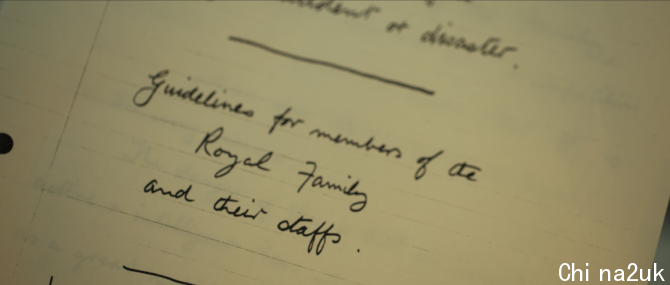 or disaster.
Guidelines for members of the
Royal Family
and their staffs.
Chi na2uk